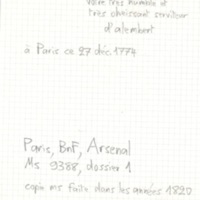 votre très humble et
très obéissant serviteur
d'alembert
à Paris ce 27 déc. 1774
Paris, BnF, Arsenal
Ms 9388, dossier 1
copie ms faite dans les années 1820